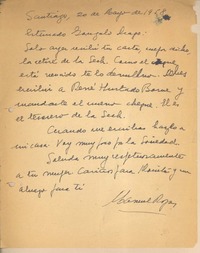 Santiago, 20 de Mayo de 1958
Estimado Gonzalo Drago:
Solo ayer recibí tu carta, mejor dicho
la retiré de la Sech. Como el cheque
está vencido te lo devuelvo. Debes
escribir a René Hurtado Borne y
mandarle el nuevo cheque. Él es
el tesorero de la Sech.
Cuando me escribas hazlo a
mi casa. Voy muy poco a la Sociedad.
Saluda muy respetuosamente
a tu mujer. Cariños para Florita y un
abrazo para ti
Manuel Rojas